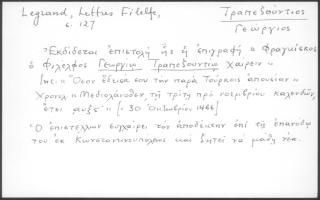 Legrand, Lettres Filelfe, Τραπεζούντιος
σ. 127 Γεώργιος
Ἐκδίδεται ἐπιστολή ἧς ἡ ἐπιγραφή « Φραγκίσκος
ὁ Φιλέλφος Γεωργίῳ Τραπεζουντίῳ χαίρειν »
Inc. « Ὅσον ἔδεισα σου τὴν παρὰ Τούρκοις ἀπουσίαν »
Χρονολ « Μεδιολάνοθεν, τῇ τρίτῃ πρὸ νοεμβρίου καλενδῶν,
ἔτει αυξς´ » [= 30 Ὀκτωβρίου 1466]
Ὁ ἐπιστέλλων συγχαίρει τὸν ἀποδέκτην ἐπὶ τῇ ἐπανόδῳ
του ἐκ Κωνσταντινουπόλεως καὶ ζητεῖ νὰ μάθῃ νέα.